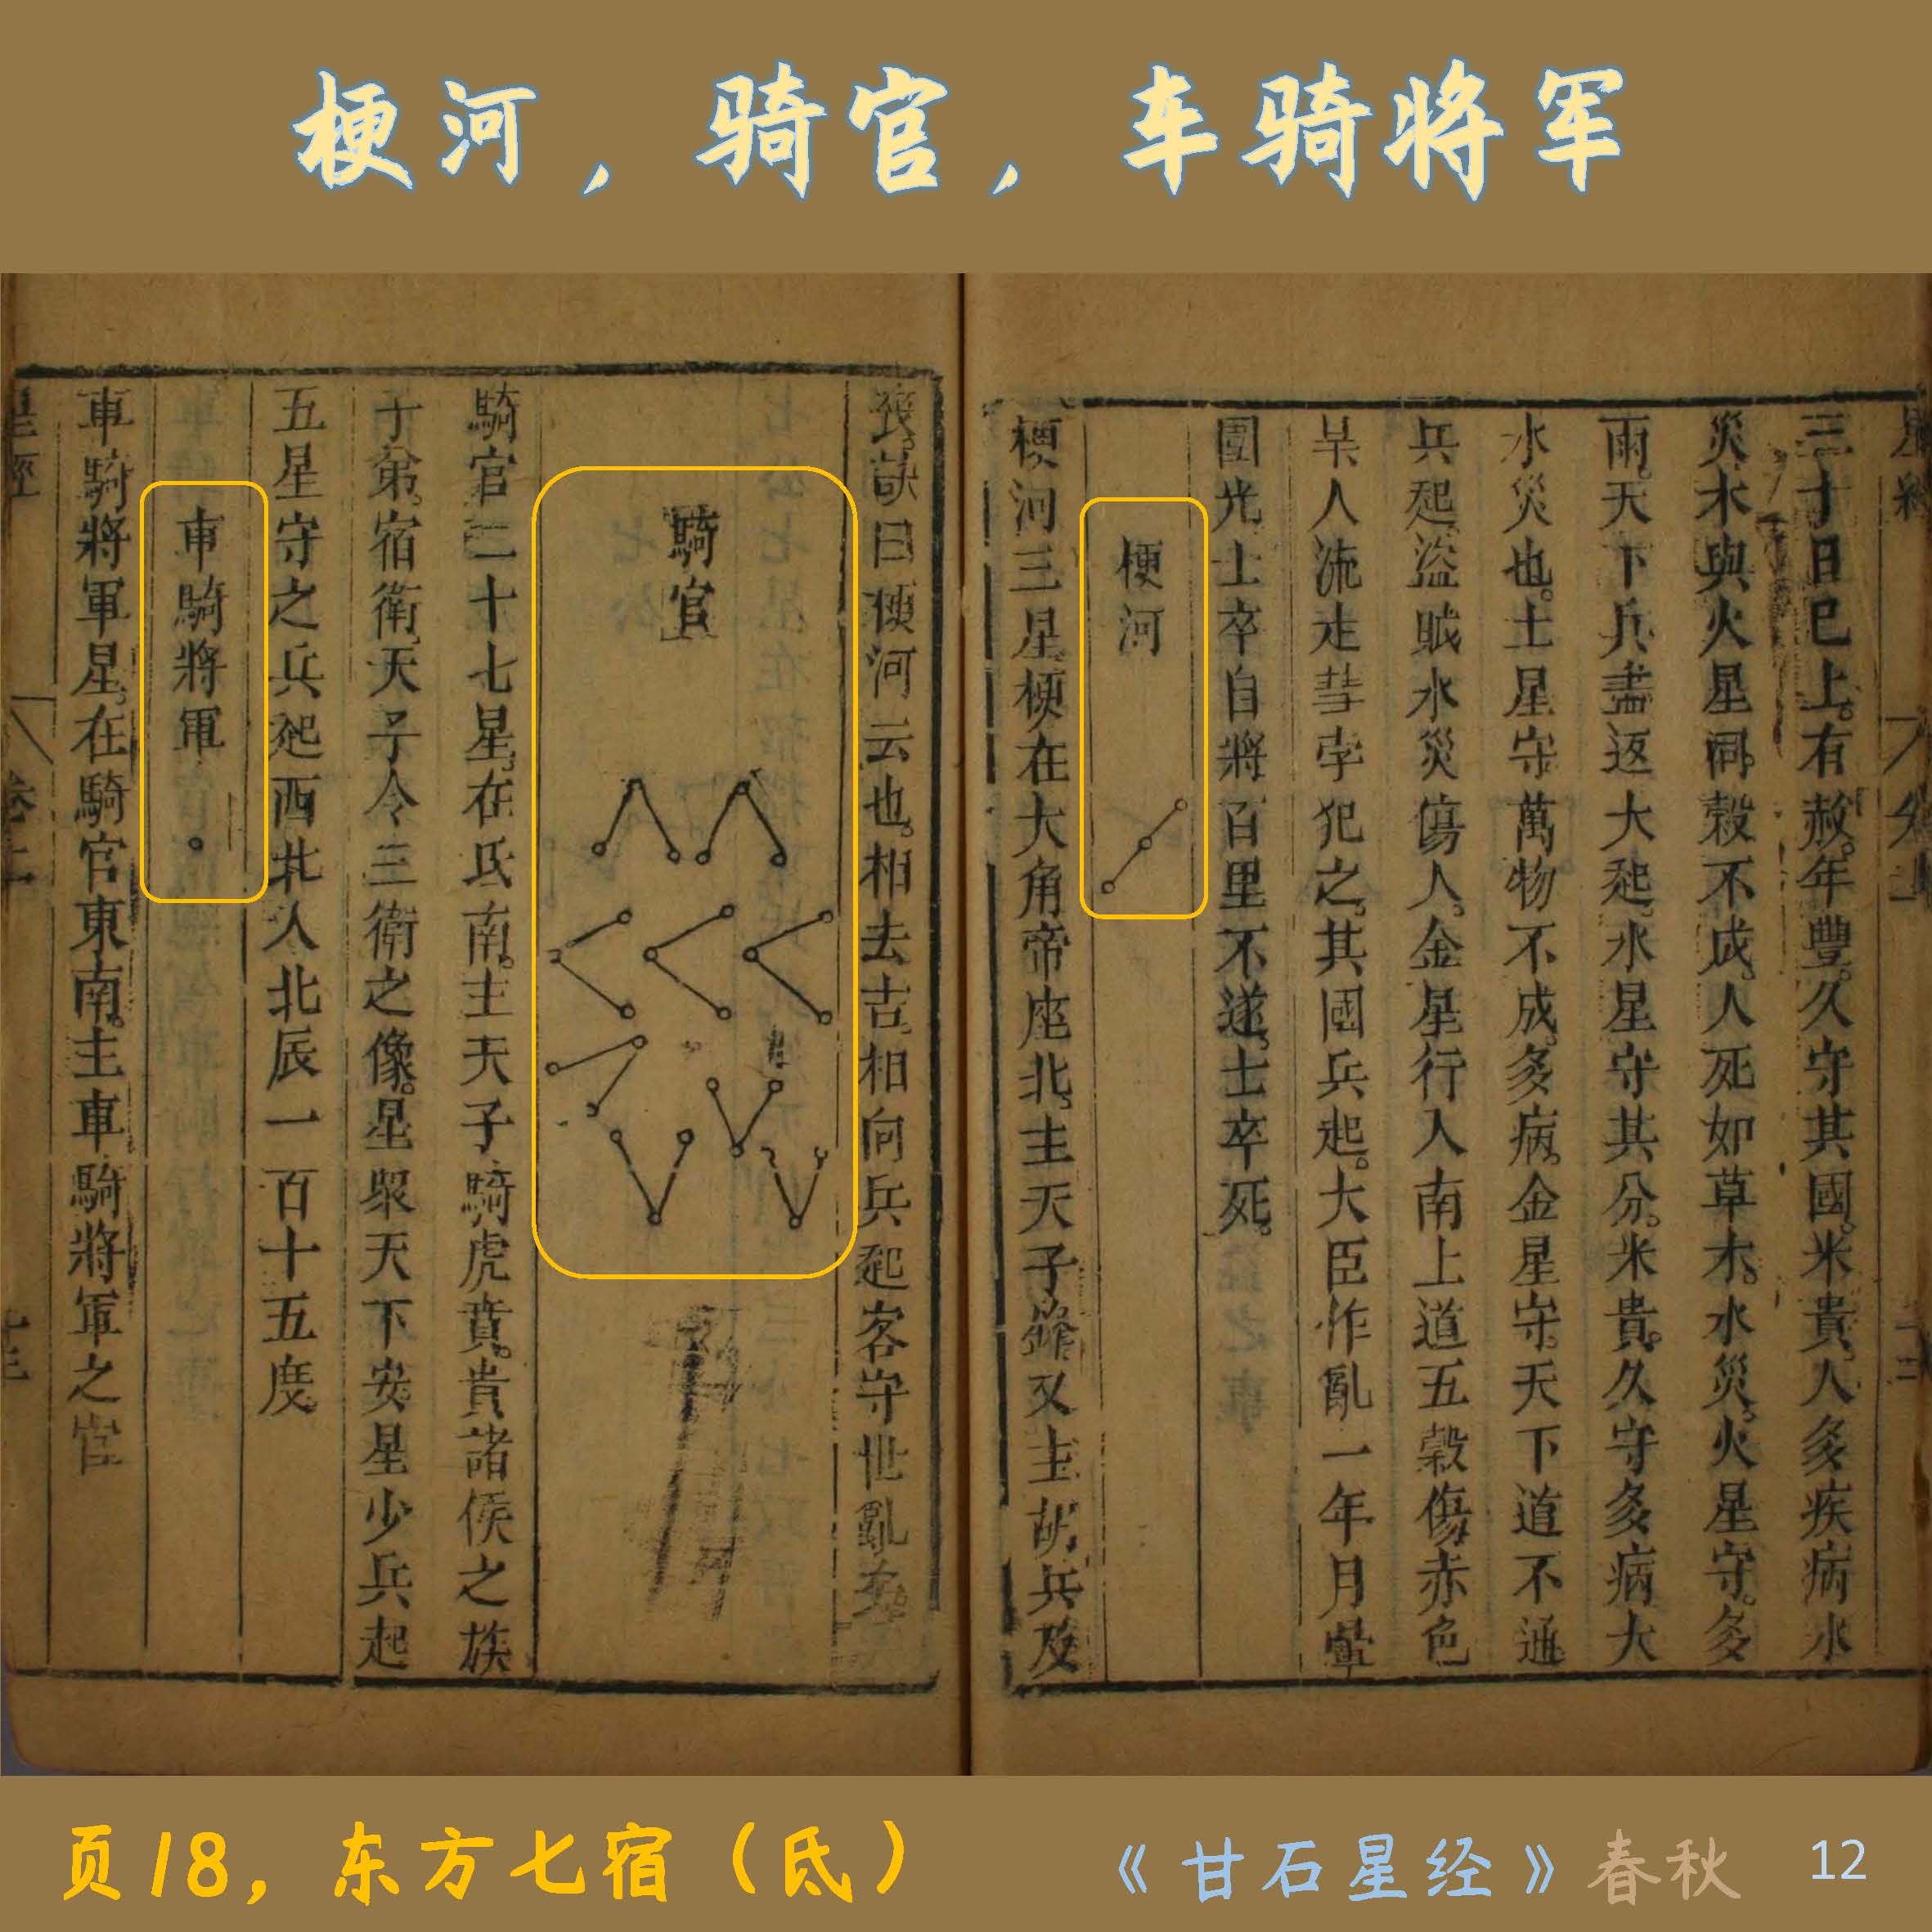 梗河，骑官，车骑将军
三十日已上。有赦。年豐。久守其國。米貴。人多疾病水
災木與火星同。穀不成。人死如草木。水災。火星守。多
雨。天下兵盡返大起。水星守其分。米貴。久守多病大
水災也。土星守萬物不成。多病。金星守。天下道不通
兵起。盜賊水災傷人。金星行入南上道五穀傷赤色
人流走彗孛犯之。其國兵起。大臣作亂一年月暈
圍光士卒自將百里不遂。士卒死。
梗河
梗河三星梗在大角帝座北。主天子鋒又主胡兵及
喪。訣曰梗河云也。相去吉。相向兵起客守世亂
騎官
騎官二十七星。在氐南。主天子騎虎賁。貴諸侯之族
子弟。宿衛天子令三衛之像。星眾天下安星少兵起
五星守之兵起西北入北辰一百十五度
車騎將軍
車騎將軍星。在騎官東南。主車騎將軍之官
页18，东方七宿（氐）
《甘石星经》春秋
12